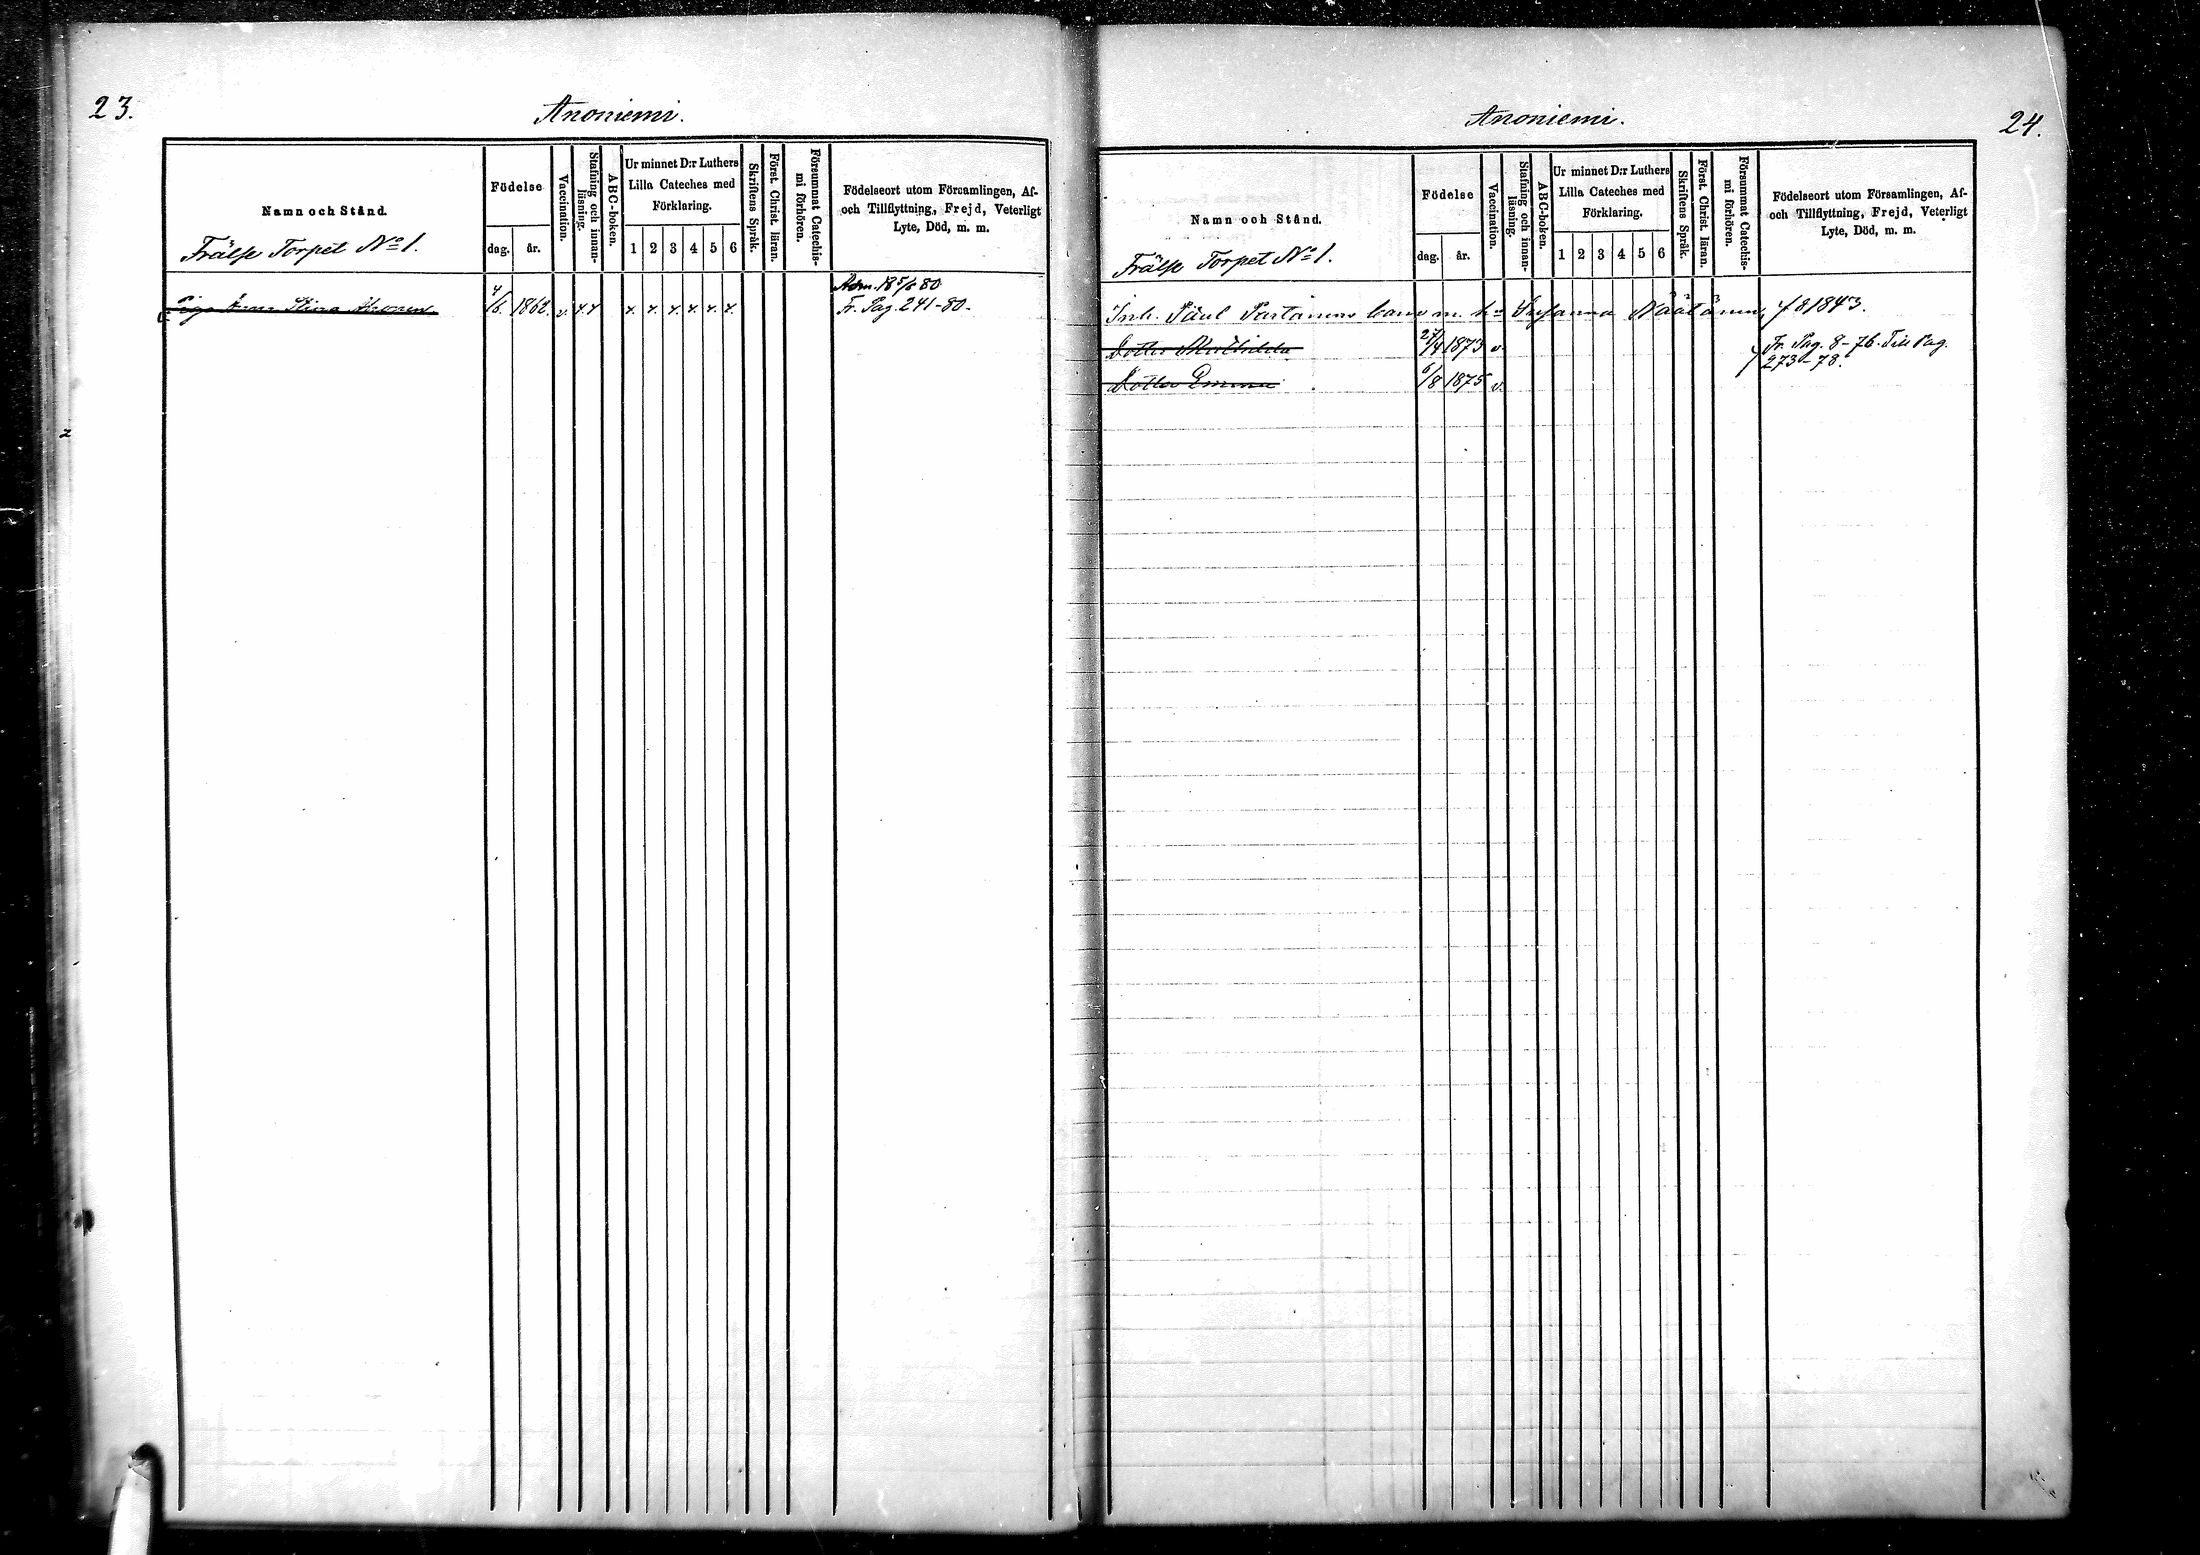 23.
Anoniemi.
Namn och Stånd.
Frälse Torpet No 1.
Födelse
dag.
år.
Vaccination.
Stafning och innan-
läsning.
ABC-boken.
Ur minnet D:r Luthers
Lilla Cateches med
Förklaring.
1 2 3 4 5 6
Skriftens Språk.
Först. Christ. läran.
Försummat Catechis-
mi förhören.
Födelseort utom Församlingen, Af-
och Tillflyttning, Frejd, Veterligt
Lyte, Död, m. m.
Adm. 18 5/6 80
Piga Anna Stina 4/6. 1862. v. x x x. x. x. x. x. x. Fr. Pag. 241-80.
Anoniemi.
24.
Namn och Stånd.
Frälse Torpet No 1.
Födelse
dag.
år.
Vaccination.
Stafning och innan-
läsning.
ABC-boken.
Ur minnet D:r Luthers
Lilla Cateches med
Förklaring.
1 2 3 4 5 6
Skriftens Språk.
Först. Christ. läran.
Försummat Catechis-
mi förhören.
Födelseort utom Församlingen, Af-
och Tillflyttning, Frejd, Veterligt
Lyte, Död, m. m.
Inh. Paul Partanens barn m. ho Susanna Näätänen, f 8 1843.
Dotter Mathilda 27/4 1873 v. Fr. Pag. 8-76. Till Pag.
273-78.
Dotter Emma 6/8 1875 v.